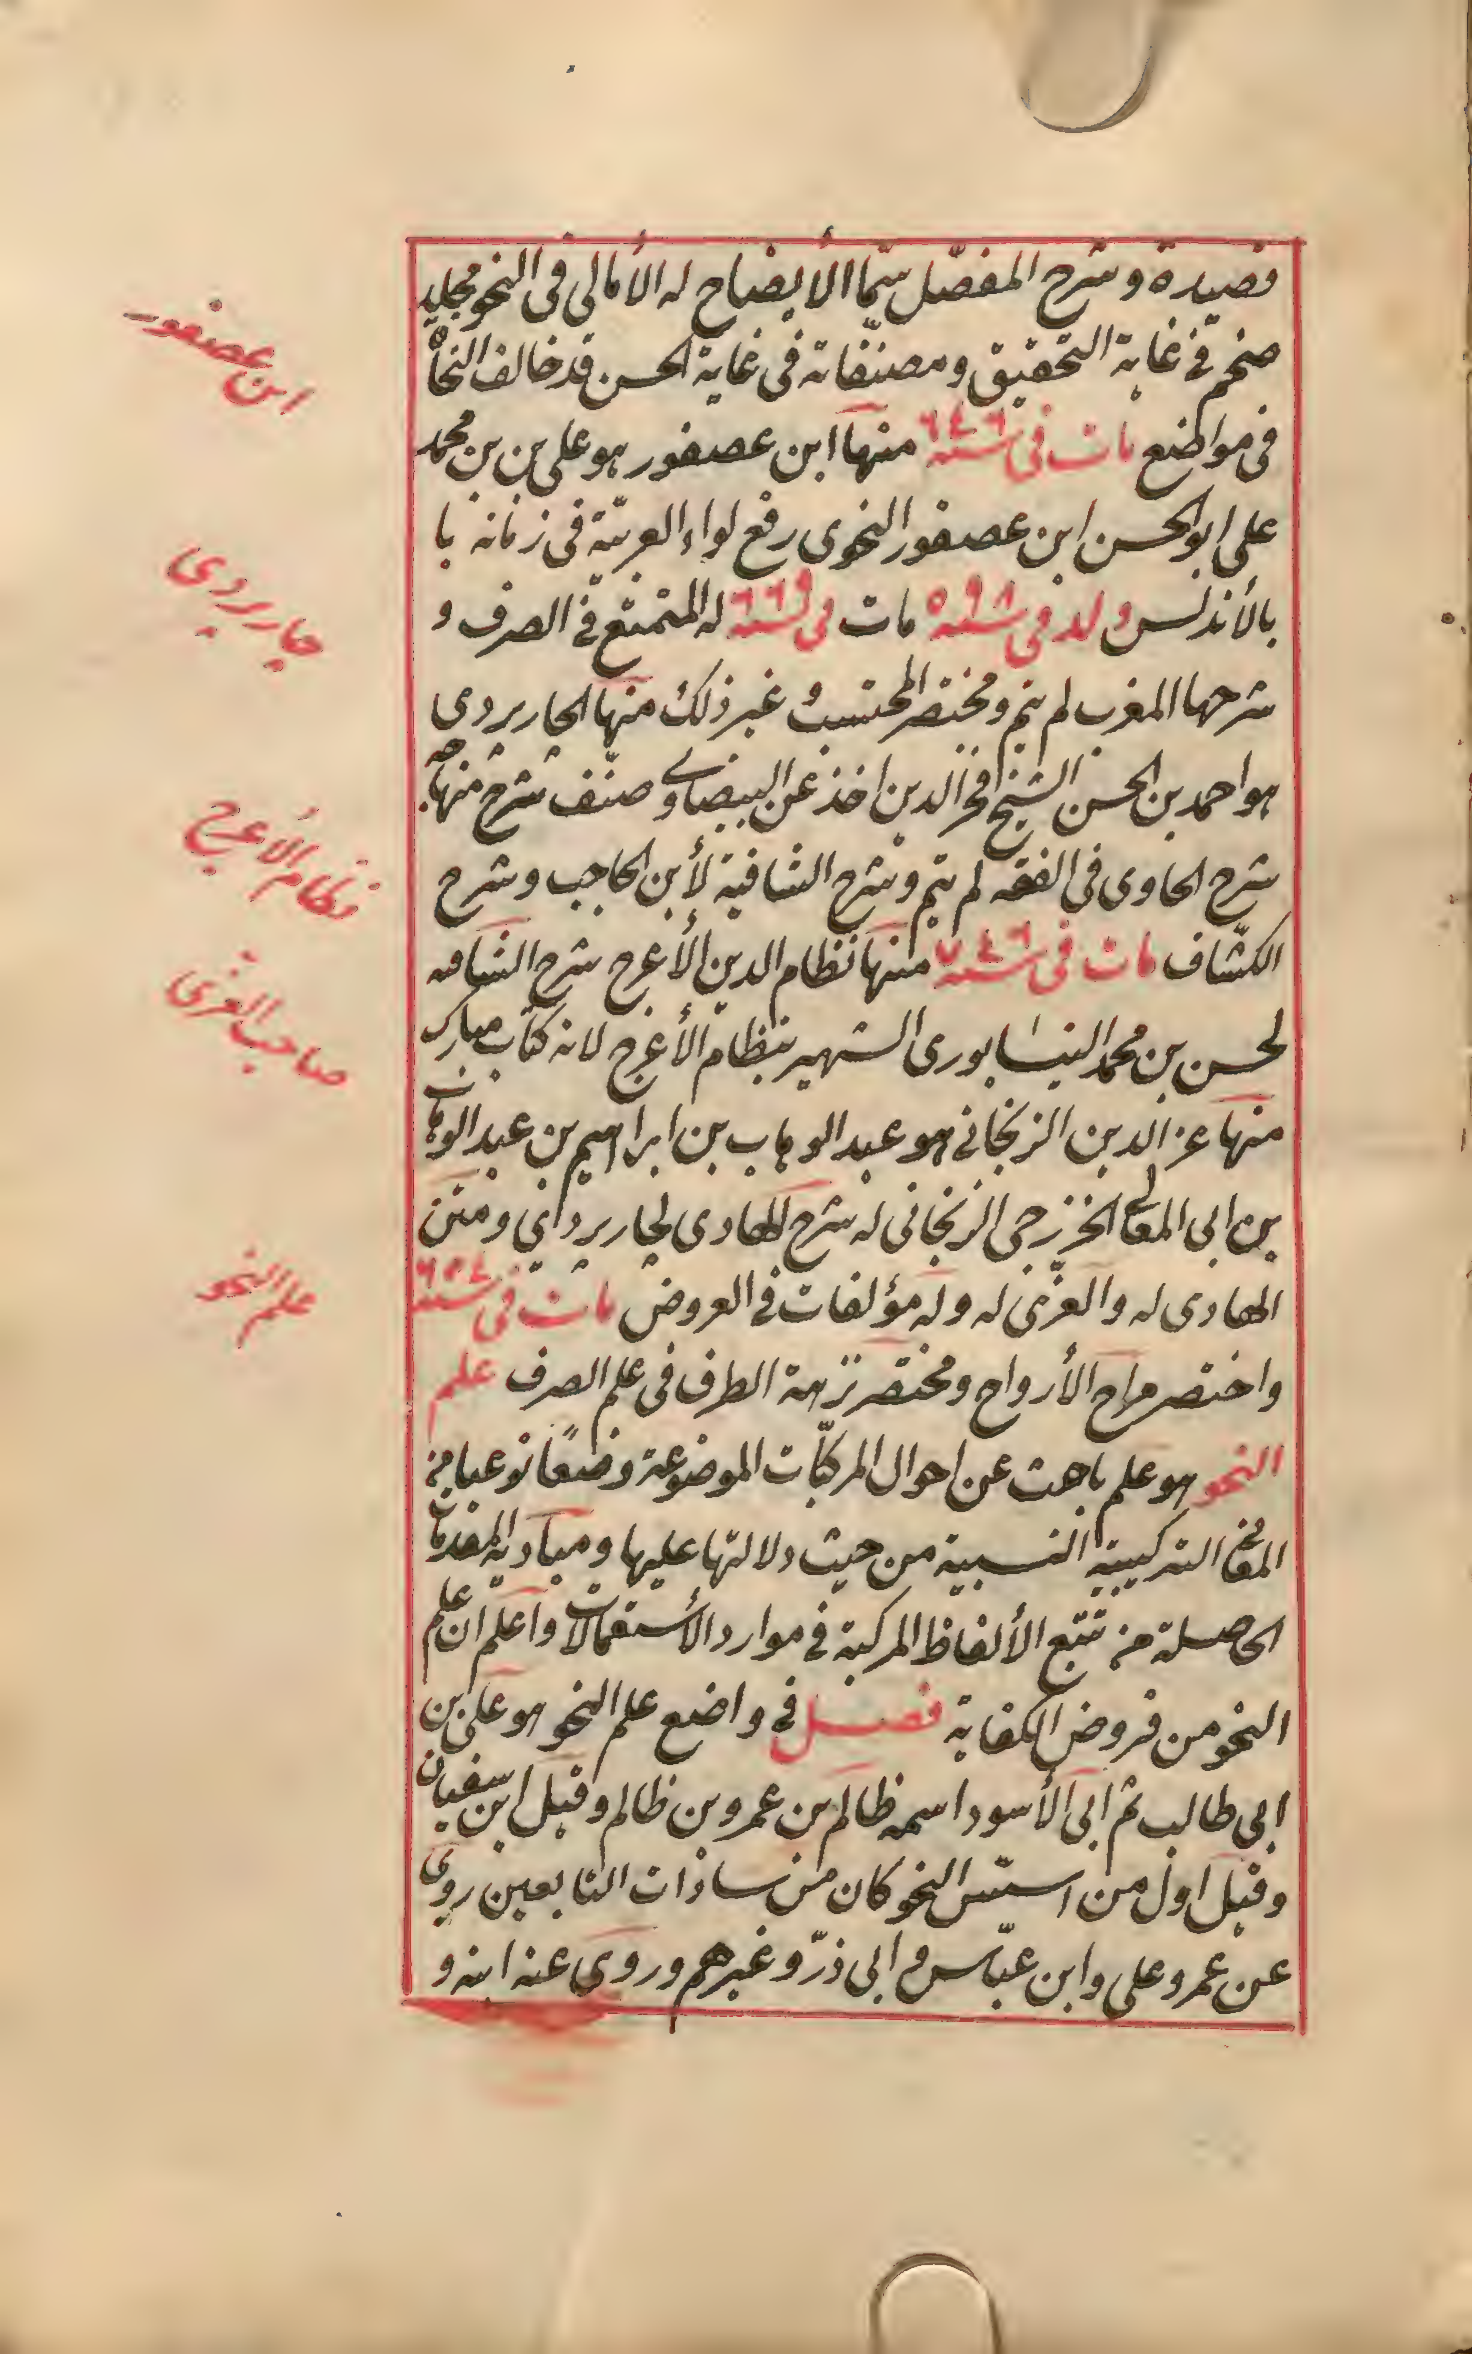 قصيدة و شرح المفصّل سمّا الأيضاح له الأمالى فى النحو مجليد
ضخم فى غاية التحقيق و مصنفّاته فى غاية الحسن قد خالف النحاة
فى مواضع مات فى سنة ٦٤٦ منها ابن عصفور هو على بن بن محمد
على ابو الحسن ابن عصفور النحوى رفع لواء العربيّة فى زمانه با
بالأندلس ولد فى سنة ٥٩٨ مات فى سنة ٦٦٩ له المتمتع فى الصرف و
شرحها المغرب لم يتم و مختصر المحتسب و غير ذلك منها الجاربردى
هو احمد بن الحسن الشيخ فخر الدين اخذ عن البيضاوى و صنّف شرح منهاجه
شرح الحاوى فى الفقه لم يتم و شرح الشافية لأبن الحاجب و شرح
الكشّاف مات فى سنة ٧٤٦ منها نظام الدين الأعرج شرح الشافيه
لحسن بن محمد النيسابورى الشهير بنظام الأعرج لانه كتاب مبارك
منها عز الدين الزنجانى هو عبد الوهاب بن ابراهيم بن عبد الوهاب
بن ابى المعالى الخزرجى الزنجانى له شرح الهادى لجاربردى و متن
الهادى له والعزّى له وله مؤلفات فى العروض مات فى سنة ٦٥٤
واختصر مراح الأرواح و مختصر نزهة الطرف فى علم الصرف علم
النحو هو علم باحث عن احوال المركبّات الموضوعة وضعًا نوعيا من
المعانى التركيبية النسبية من حيث دلالتها عليها و مباديه المقدمات
الحاصلة من تتبع الألفاظ المركبة فى موارد الأستعمالات واعلم ان علم
النحو من فروض الكفاية فصل فى واضع علم النحو هو على بن
ابى طالب ثم ابى الأسود اسمه ظالم بن عمرو بن ظالم و قيل ابن سفيان
و قيل اول من اسسّ النحو كان من سادات التابعين روى
عن عمر و على و ابن عبّاس و ابى ذرّ و غيرهم و روى عنه ابنه و
ابن عصفور
جاربردى
نظام الأعرج
صاحب العزّى
علم النحو